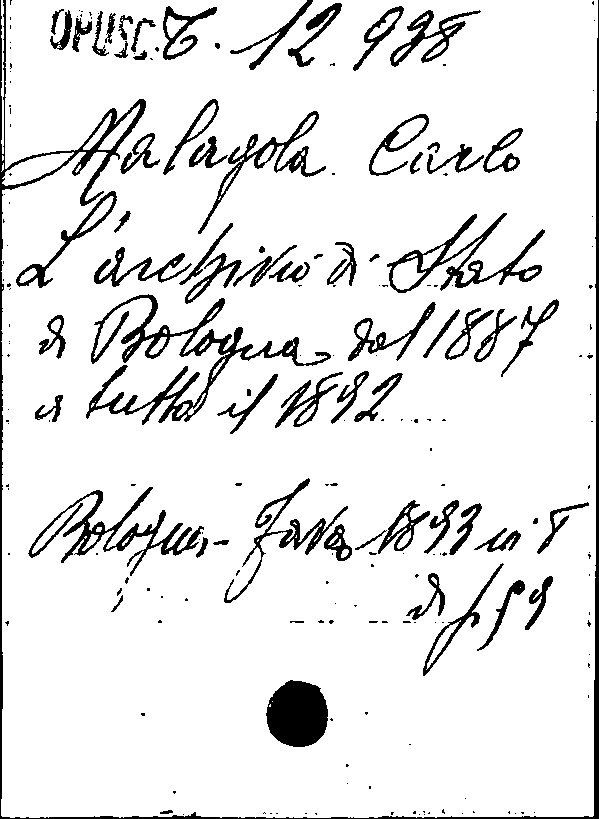 OPUSC. T. 12. 938
Malagola Carlo
L'archivio di Stato
di Bologna dal 1887
a tutto il 1892
Bologna - Fava 1893 in 8
di p. 59